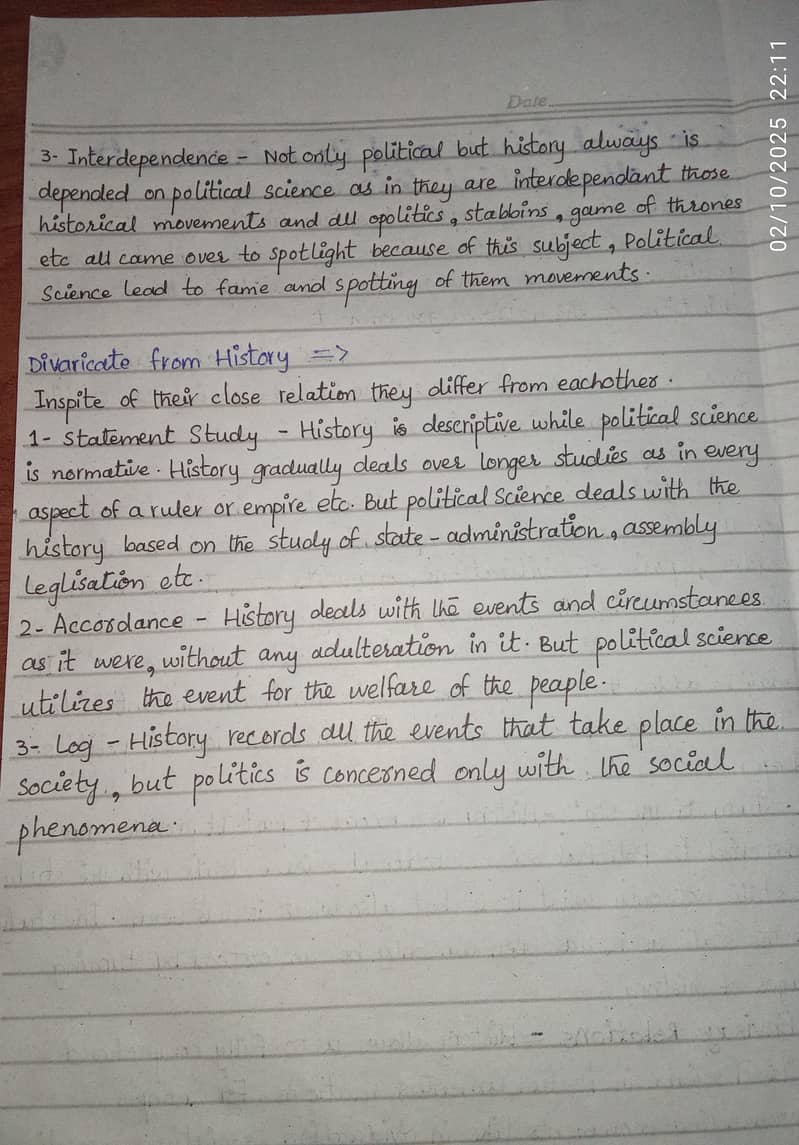 Date
02/10/2025 22:11
3- Interdependence - Not only political but history always is
depended on political science as in they are interdependant those
historical movements and all opolitics, stabbins, game of thrones
etc all came over to spotlight because of this subject, Political
Science lead to fame and spotting of them movements.
Divaricate from History =>
Inspite of their close relation they differ from eachother.
1- Statement Study - History is descriptive while political science
is normative. History gradually deals over longer studies as in every
aspect of a ruler or empire etc. But political science deals with the
history based on the study of state-administration, assembly
Leglisation etc.
2- Accordance - History deals with the events and circumstances
as it were, without any adulteration in it. But political science
utilizes the event for the welfare of the peaple.
3- Log - History records all the events that take place in the
society, but politics is concerned only with the social
phenomena.